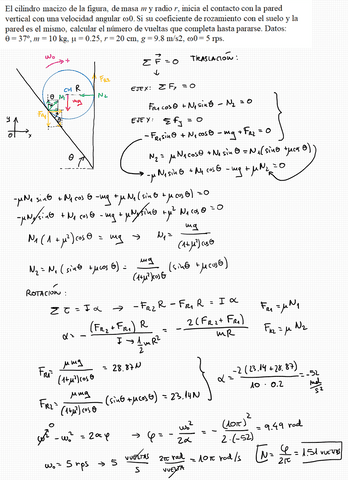 El cilindro macizo de la figura, de masa m y radio r, inicia el contacto con la pared
vertical con una velocidad angular ω0. Si su coeficiente de rozamiento con el suelo y la
pared es el mismo, calcular el número de vueltas que completa hasta pararse. Datos:
θ = 37º, m = 10 kg, μ = 0.25, r = 20 cm, g = 9.8 m/s2, ω0 = 5 rps.
ω₀ +
CM R
mg
N₂
F_R2
N₁
F_R1
θ
y
x
θ
Σ F⃗ = 0 TRASLACIÓN:
EJE X: Σ Fₓ = 0
F_R1 cosθ + N₁ sinθ - N₂ = 0
EJE Y: Σ F_y = 0
-F_R1 sinθ + N₁ cosθ - mg + F_R2 = 0
N₂ = μN₁ cosθ + N₁ sinθ = N₁(sinθ + μcosθ)
-μN₁ sinθ + N₁ cosθ - mg + μN₂ = 0
-μN₁ sinθ + N₁ cosθ - mg + μN₁(sinθ + μcosθ) = 0
-μN₁ sinθ + N₁ cosθ - mg + μN₁ sinθ + μ² N₁ cosθ = 0
N₁ (1 + μ²) cosθ = mg → N₁ = mg / (1+μ²)cosθ
N₂ = N₁ (sinθ + μcosθ) = mg / (1+μ²)cosθ (sinθ + μcosθ)
ROTACIÓN:
Σ τ = I α → -F_R2 R - F_R1 R = I α
F_R1 = μN₁
F_R2 = μN₂
α = - (F_R2 + F_R1) R / I → ½mR² = - 2(F_R2 + F_R1) / mR
F_R1 = μmg / (1+μ²)cosθ = 28.87N
F_R2 = μmg / (1+μ²)cosθ (sinθ + μcosθ) = 23.14N
α = -2(23.14 + 28.87) / 10 · 0.2 = -52 rad/s²
ω² - ω₀² = 2αφ → φ = - ω₀² / 2α = - (10π)² / 2·(-52) = 9.49 rad
ω₀ = 5 rps → 5 vueltas/s 2π rad/vuelta = 10π rad/s
N = φ / 2π = 1.51 vueltas